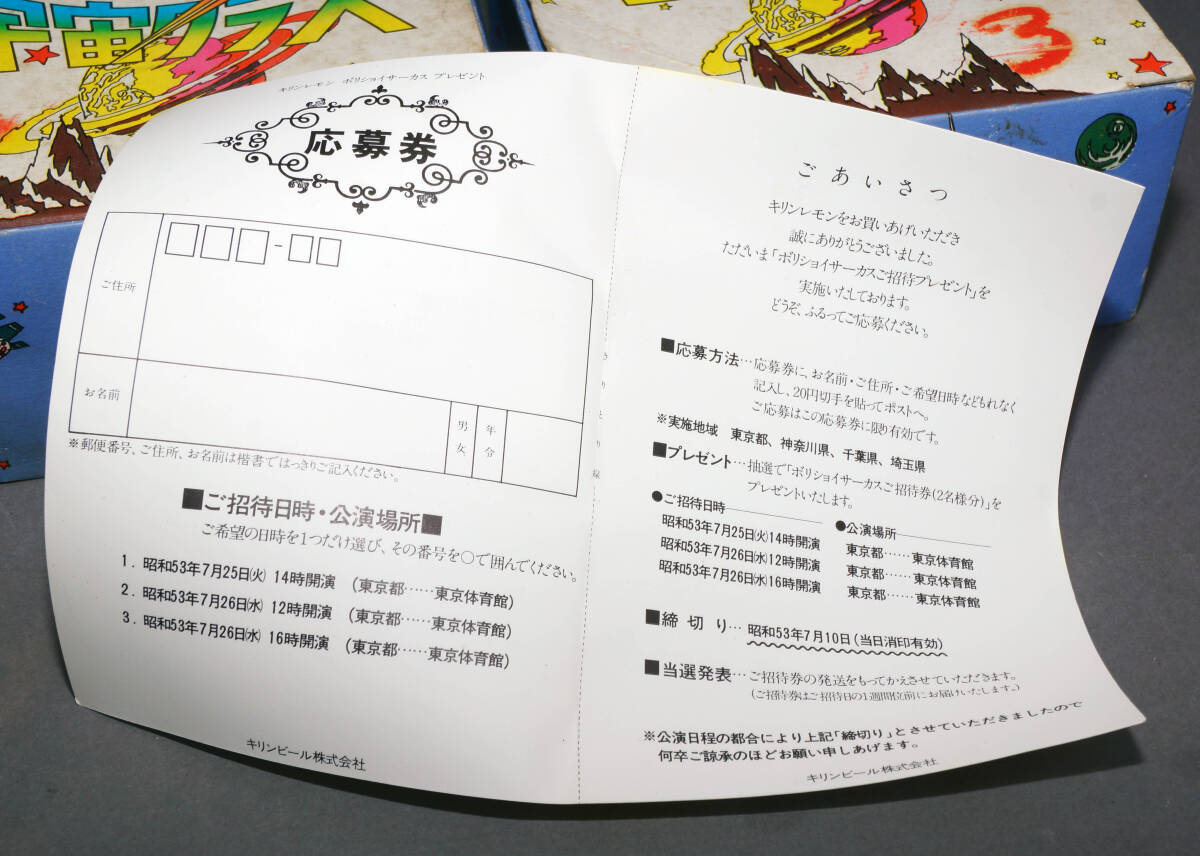 宇宙グラス
3
キリンレモン ボリショイサーカス プレゼント
応募券
ご住所
お名前
男
女
年
令
※郵便番号、ご住所、お名前は楷書ではっきりご記入ください。
■ご招待日時・公演場所■
ご希望の日時を1つだけ選び、その番号を○で囲んでください。
1. 昭和53年7月25日㈫ 14時開演 (東京都……東京体育館)
2. 昭和53年7月26日㈬ 12時開演 (東京都……東京体育館)
3. 昭和53年7月26日㈬ 16時開演 (東京都……東京体育館)
キリンビール株式会社
きりとり線
ごあいさつ
キリンレモンをお買いあげいただき
誠にありがとうございました。
ただいま「ボリショイサーカスご招待プレゼント」を
実施いたしております。
どうぞ、ふるってご応募ください。
■応募方法…応募券に、お名前・ご住所・ご希望日時などもれなく
記入し、20円切手を貼ってポストへ。
ご応募はこの応募券に限り有効です。
※実施地域 東京都、神奈川県、千葉県、埼玉県
■プレゼント…抽選で「ボリショイサーカスご招待券(2名様分)」を
プレゼントいたします。
●ご招待日時 ●公演場所
昭和53年7月25日㈫14時開演 東京都……東京体育館
昭和53年7月26日㈬12時開演 東京都……東京体育館
昭和53年7月26日㈬16時開演 東京都……東京体育館
■締切り…昭和53年7月10日(当日消印有効)
■当選発表…ご招待券の発送をもってかえさせていただきます。
(ご招待券はご招待日の1週間位前にお届けいたします。)
※公演日程の都合により上記「締切り」とさせていただきましたので
何卒ご諒承のほどお願い申しあげます。
キリンビール株式会社